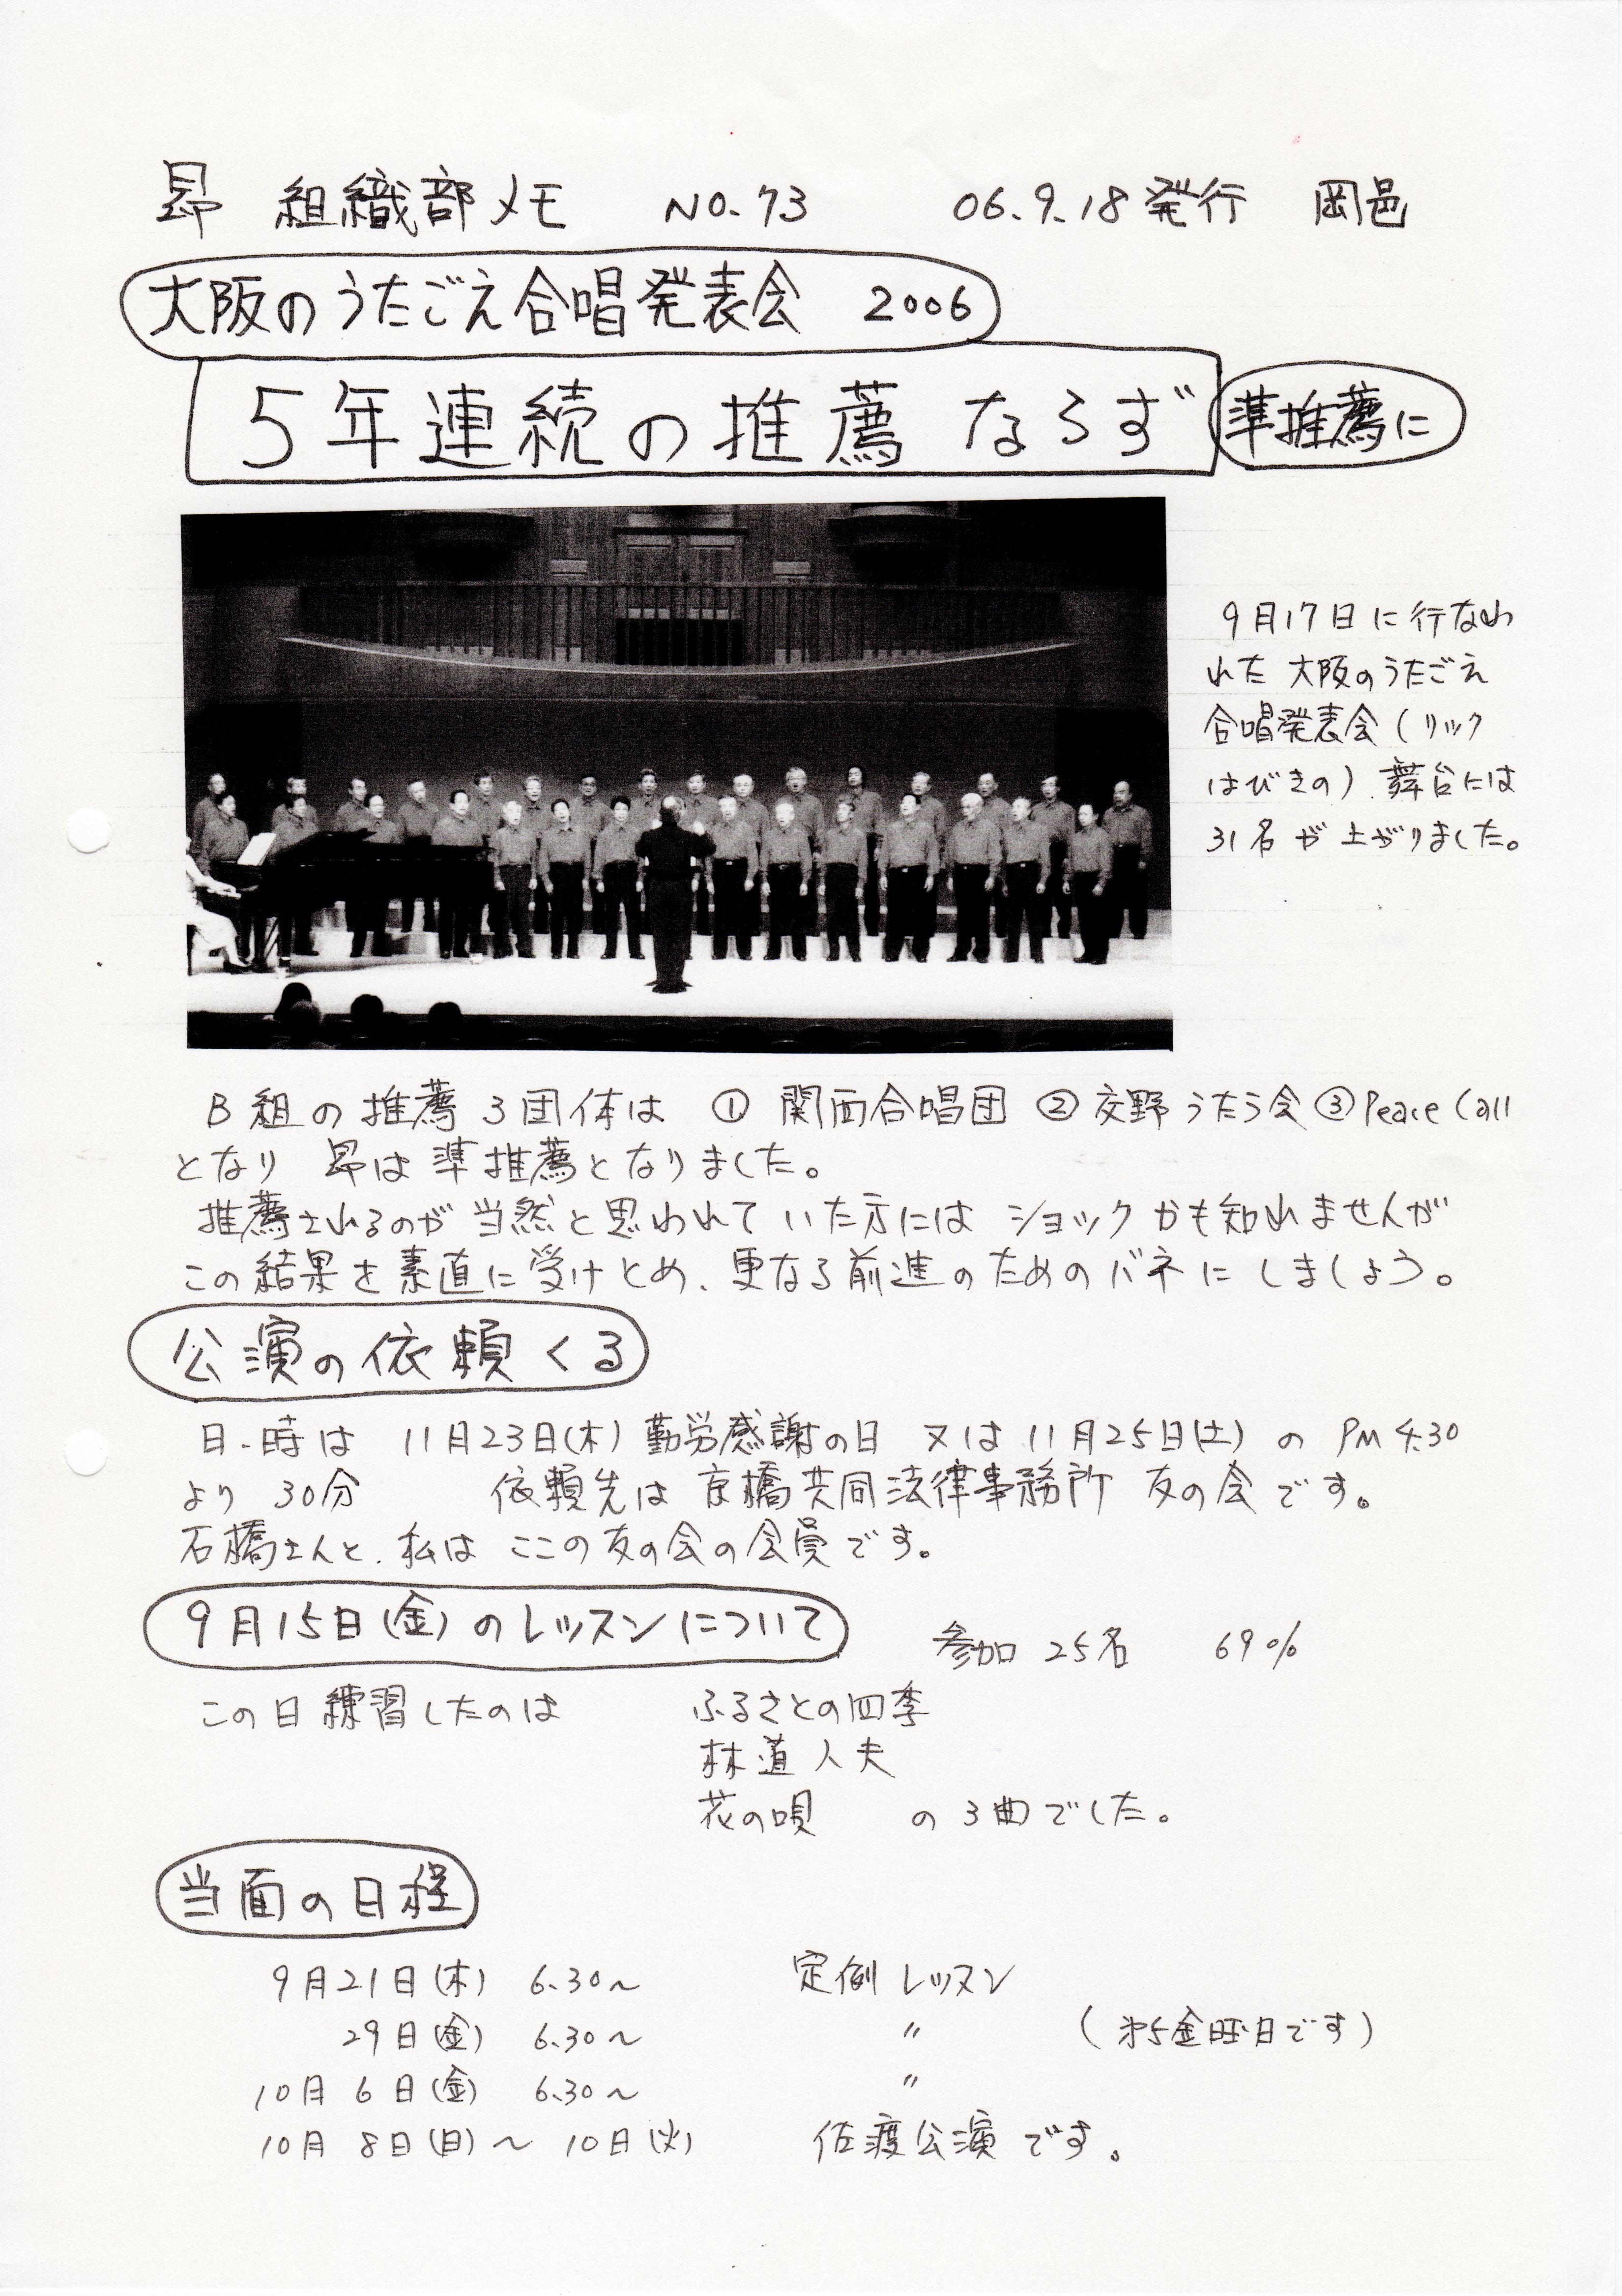 昴 組織部メモ NO.73 06.9.18発行 岡邑
大阪のうたごえ合唱発表会 2006
5年連続の推薦ならず 準推薦に
9月17日に行なわ
れた大阪のうたごえ
合唱発表会(リック
はびきの)舞台には
31名が上がりました。
B組の推薦3団体は ① 関西合唱団 ② 交野うたう会 ③ Peace Call
となり 昴は準推薦となりました。
推薦されるのが当然と思われていた方にはショックかも知れませんが
この結果を素直に受けとめ、更なる前進のためのバネにしましょう。
公演の依頼くる
日.時は 11月23日(木)勤労感謝の日 又は11月25日(土)の PM4.30
より 30分 依頼先は京橋共同法律事務所 友の会です。
石橋さんと、私は ここの友の会の会員です。
9月15日(金)のレッスンについて 参加 25名 69%
この日練習したのは ふるさとの四季
林道人夫
花の唄 の3曲でした。
当面の日程
9月21日(木) 6.30〜 定例レッスン
29日(金) 6.30〜 〃 (第5金曜日です)
10月 6日(金) 6.30〜 〃
10月 8日(日)〜 10日(火) 佐渡公演です。